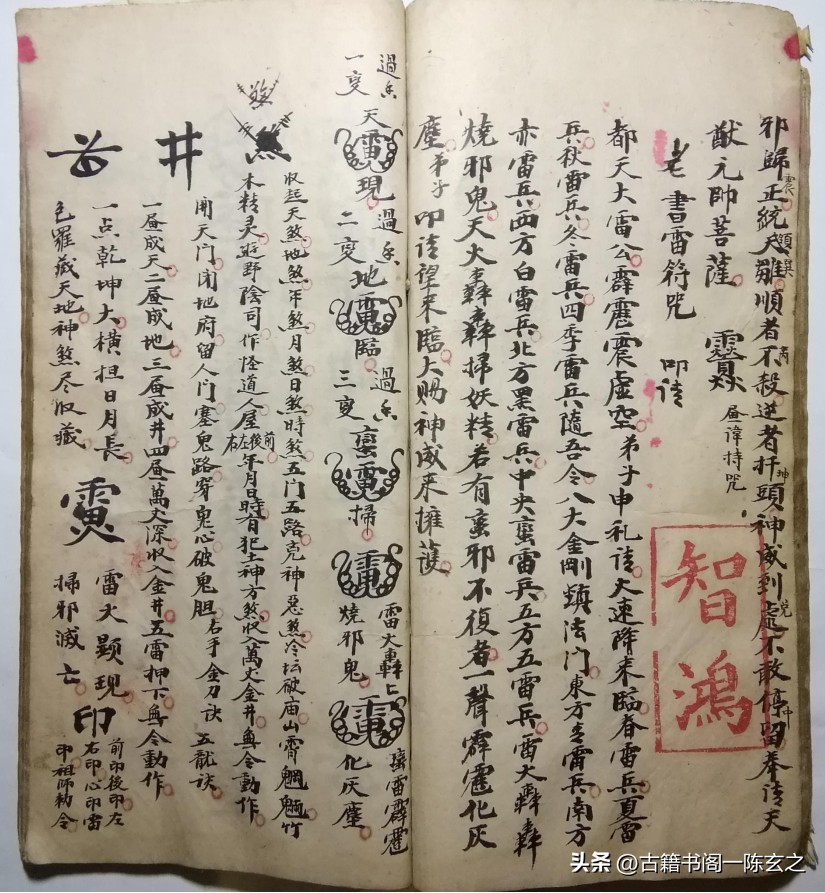 邪歸正統天雛順者不殺逆者扦頭神威到處不敢停留奉請天
猷元帥菩薩
昼諱持咒
書雷符咒 叩请
都天大雷公霹靂震虚空弟子申礼请火速降来臨春雷兵夏雷
兵秋雷兵冬雷兵四季雷兵隨吾令八大金剛鎮法门東方青雷兵南方
赤雷兵西方白雷兵北方黑雷兵中央蛮雷兵五方五雷兵雷火轟轟
燒邪鬼天火轟轟掃妖精若有蛮邪不復者一聲霹靂化灰
塵弟子叩请望来臨大賜神威来擁護
智鴻
過香 過香 過香 雷火轟七 蛮雷霹靂
一变天 現 二变地 臨 三变蛮 掃 燒邪鬼 化灰塵
收起天煞地煞年煞月煞日煞時煞五门五路克神惡煞冷坛破庙山霄魍魎竹
木精灵遊野陰司作怪道人屋前後左右年月日時有犯土神方煞收入萬丈金井無令動作
開天门闭地府留人门塞鬼路穿鬼心破鬼胆右手金刀诀五龍诀
井
一昼成天二昼成地三昼成井四昼萬丈深収入金井五雷押下無令動作
一点乾坤大横担日月長 雷火顕現
包羅藏天地神煞尽収藏 掃邪滅亡
印
前印後印左
右印心印雷
印祖師勅令
头条 @古籍书阁一陈玄之